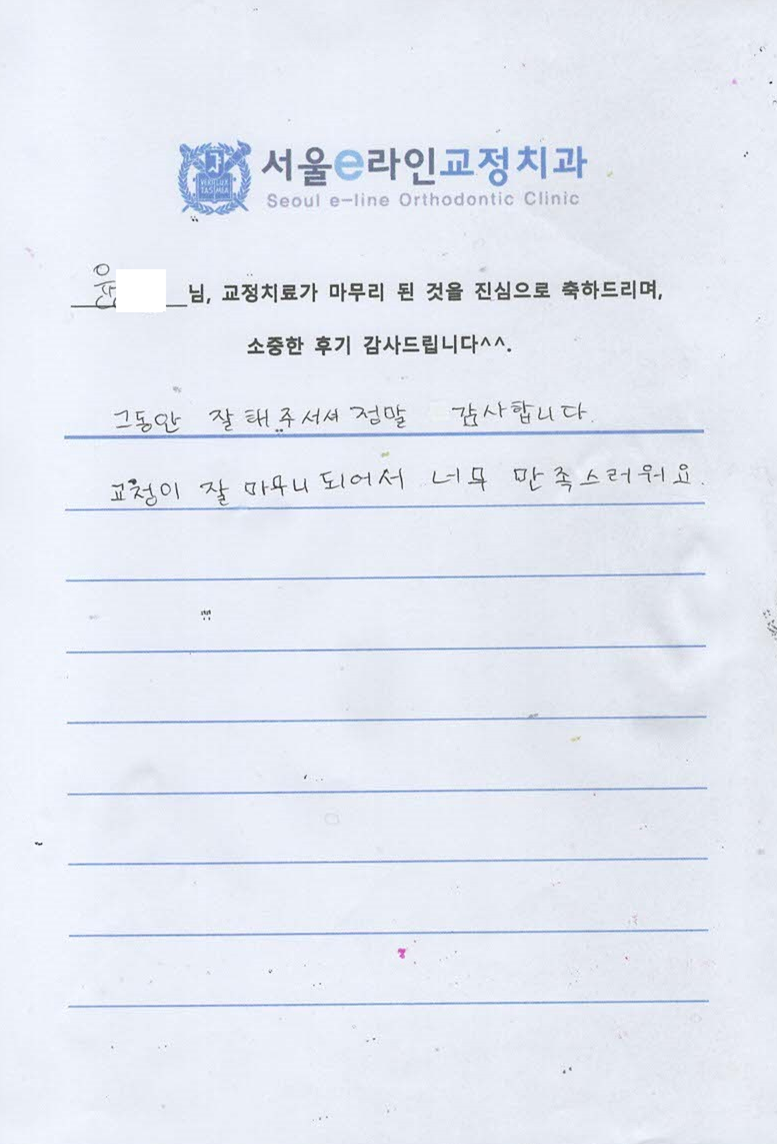 VERI LUX
TAS MEA
서울e라인교정치과
Seoul e-line Orthodontic Clinic
윤 님, 교정치료가 마무리 된 것을 진심으로 축하드리며,
소중한 후기 감사드립니다^^.
그동안 잘 해 주서셔 정말 감사합니다.
교정이 잘 마무리 되어서 너무 만족스러워요.